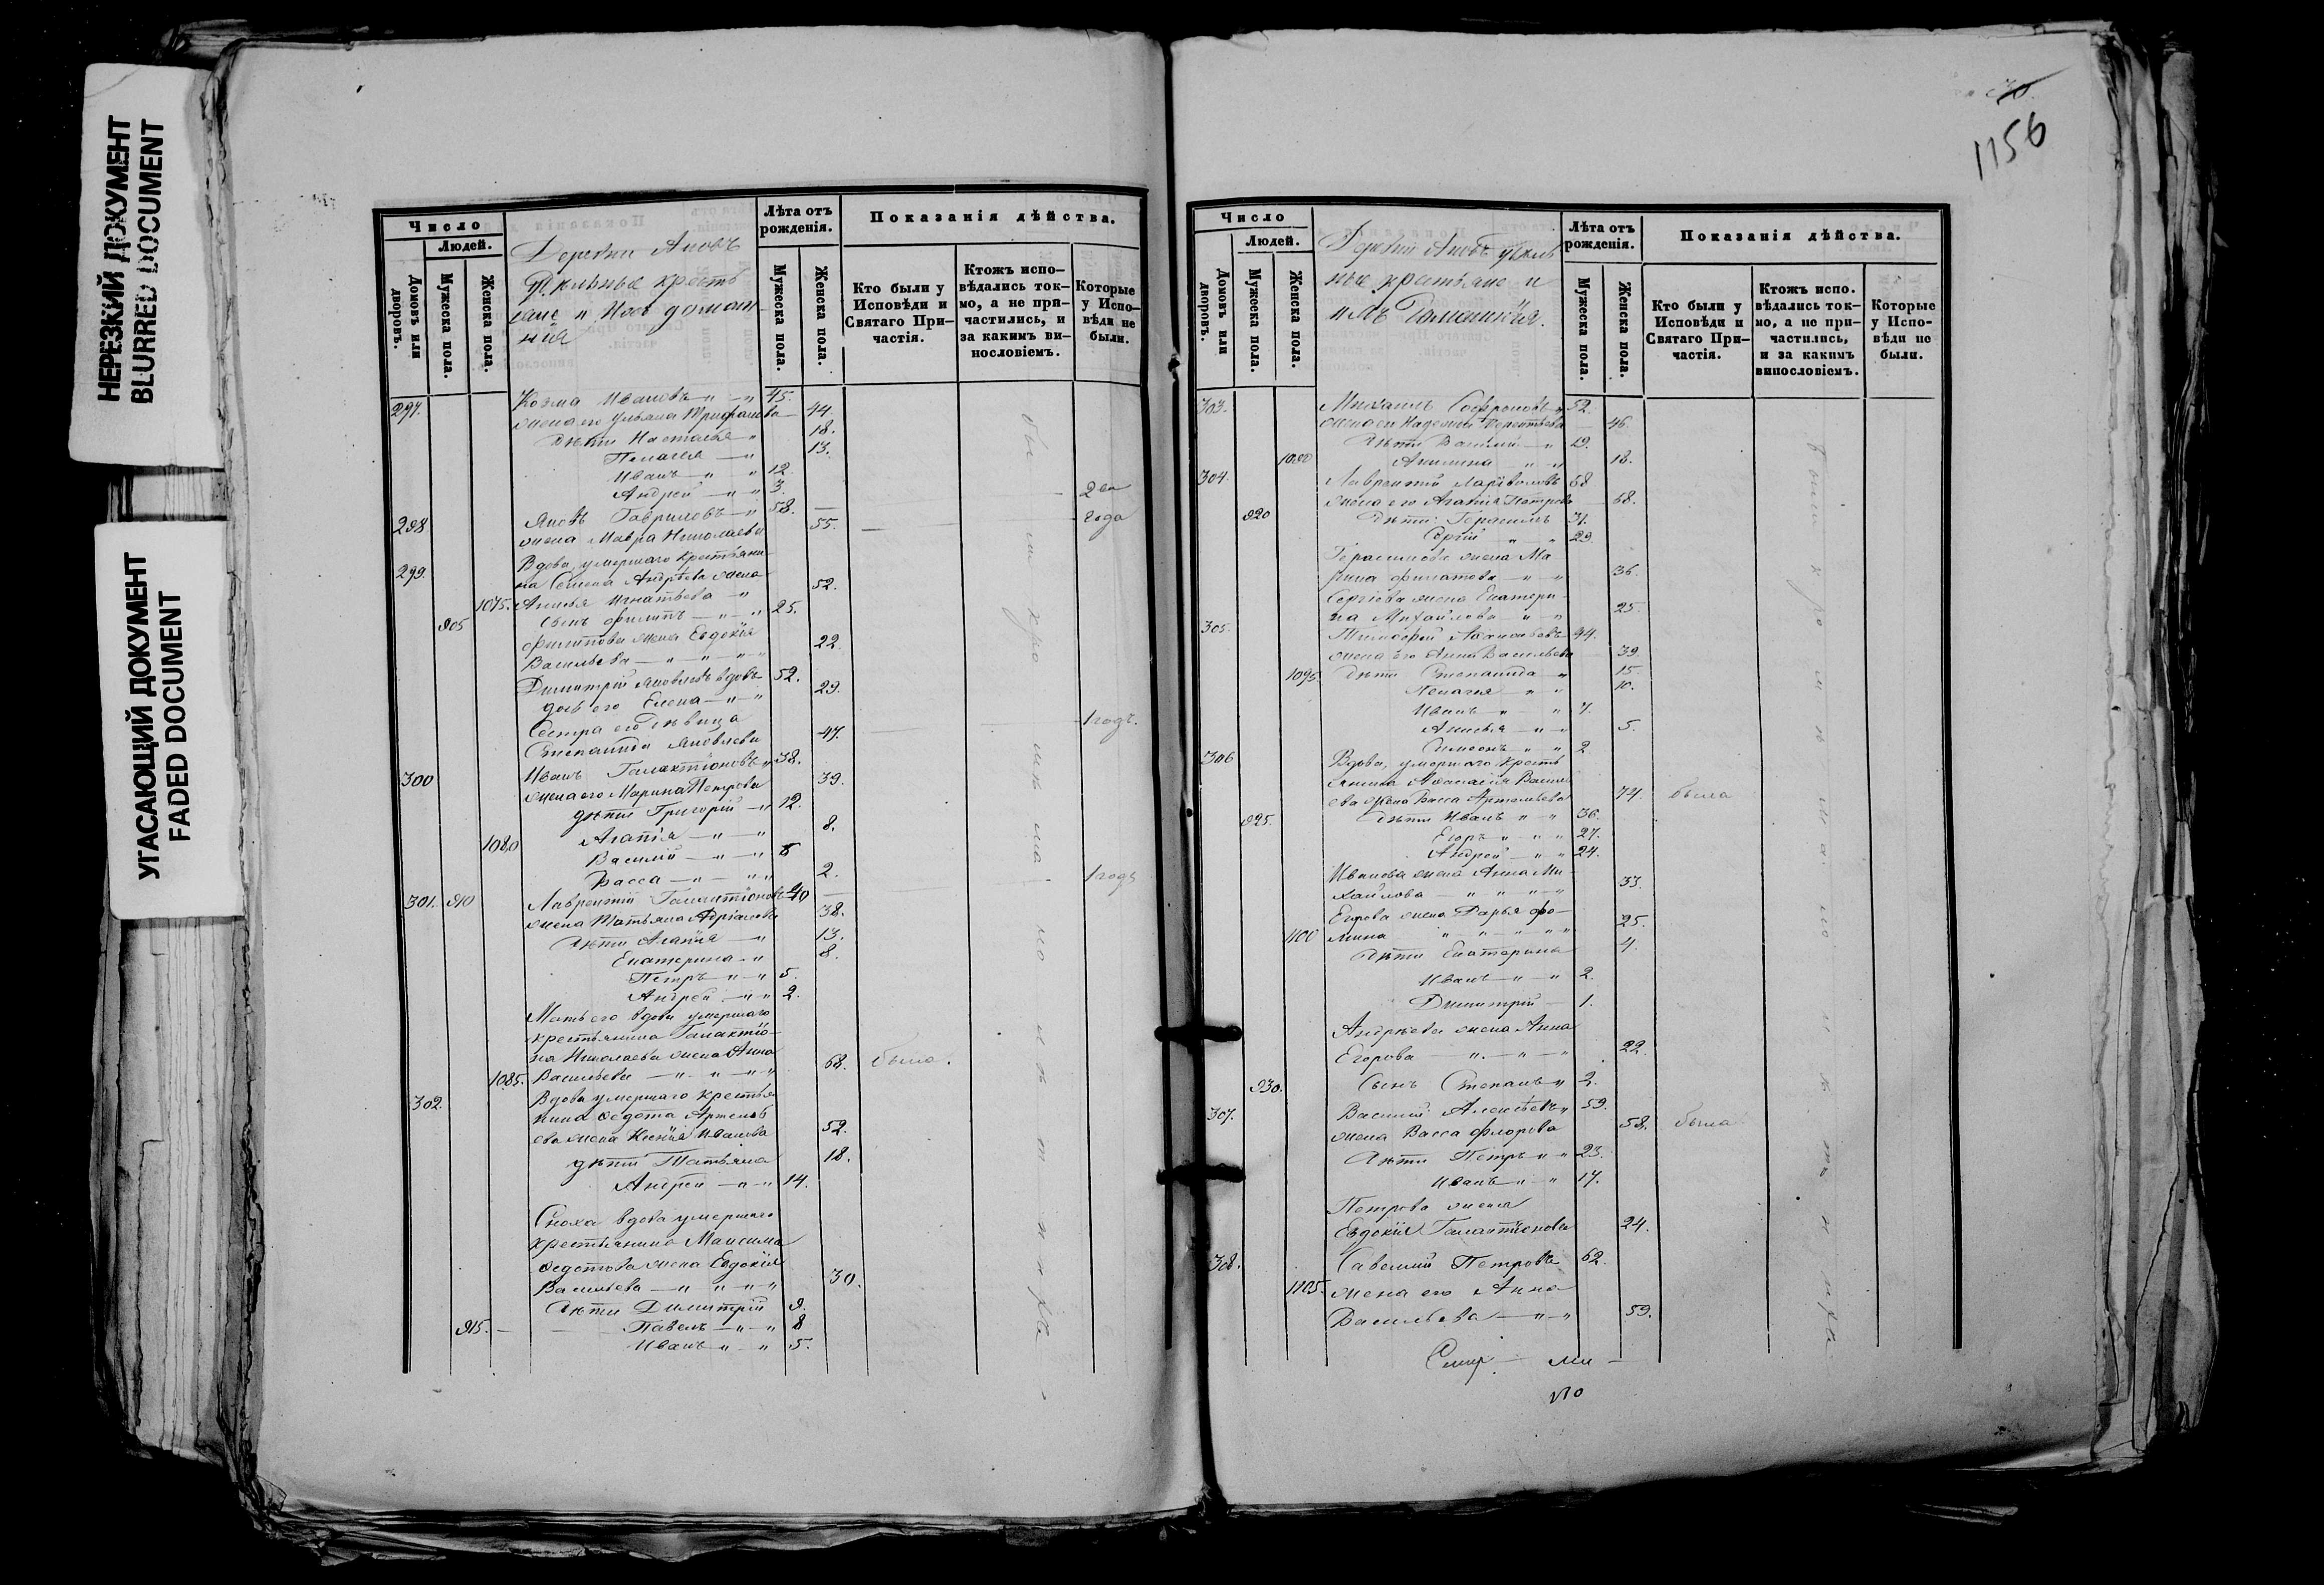 НЕРЕЗКИЙ ДОКУМЕНТ
BLURRED DOCUMENT
УГАСАЮЩИЙ ДОКУМЕНТ
FADED DOCUMENT
Число
Людей.
Домовъ или дворовъ.
Мужеска пола.
Женска пола.
Деревни
крестьяне и ихъ домаш
нія
Лѣта отъ рожденія.
Мужеска пола.
Женска пола.
Показанія дѣйства.
Кто были у Исповѣди и Святаго При-частія.
Ктожъ испо-вѣдались ток-мо, а не при-частились, и за какимъ ви-нословіемъ.
Которые у Испо-вѣди не были.
297. Козма Ивановъ 45.
жена его Ульяна 44.
дѣти Настасья 18.
Пелагея 13.
Иванъ 12
Андрей 3.
298 Яковъ Гавриловъ 58.
жена Мавра Николаева 55. 2 года
299. Вдова, умершаго крестьяни-
на Семена Андрѣева жена
1075. Анисья Игнатьева 52.
905 сынъ Филипъ 25.
Филипова жена Евдокія
Васильева 22.
Димитрій Яковлевъ вдовъ 52.
дочь его Елена 29.
Сестра его дѣвица
Степанида Яковлева 47. 1 годъ.
300 Иванъ Галактіоновъ 38.
жена его Марина Петрова 39.
дѣти Григорій 12.
1080 Агапія 8.
Василій 6
Васса 2.
301. 910 Лаврентій Галактіоновъ 40 1 годъ
жена Татьяна Адріанова 38.
дѣти Агапія 13.
Екатерина 8.
Петръ 5.
Андрей 2.
Мать его вдова умершаго
крестьянина Галактіо-
на Николаева жена Анна
1085. Васильева 68. была.
302. Вдова умершаго крестья
нина Ѳедота Артемь
ева жена Ксенія Иванова 52.
дѣти Татьяна 18.
Андрей 14.
Сноха вдова умершаго
крестьянина Максима
Ѳедотова жена Евдокія
Васильева 30.
дѣти Димитрій 9.
915. Павелъ 8
Иванъ 5.
1156
Число
Людей.
Домовъ или дворовъ.
Мужеска пола.
Женска пола.
Деревни
ные крестьяне и
ихъ домашнія.
Лѣта отъ рожденія.
Мужеска пола.
Женска пола.
Показанія дѣйства.
Кто были у Исповѣди и Святаго При-частія.
Ктожъ испо.вѣдались ток-мо, а не при-частились, и за какимъ винословіемъ.
Которые у Испо-вѣди не были.
303. Михаилъ Софроновъ 52.
жена его Надежда 46.
дѣти Василій 19.
1090 Акилина 18.
304. Лаврентій 68
жена его Агапія Петрова 68.
920 дѣти: Герасимъ 31.
Сергій 29.
Герасимова жена Ма
рина Филатова 36.
Сергіева жена Екатери-
на Михайлова 25.
305. Тимофей Аѳанасьевъ 44.
жена его Анна Васильева 39
1095. дѣти Степанида 15.
Пелагея 10.
Иванъ 7.
Анисья 5.
Симеонъ 2
306 Вдова, умершаго кресть
янина Аѳанасія Василь
ева жена Васса Артемьева 74. была
925. дѣти Иванъ 36.
Егоръ 27.
Андрей 24.
Иванова жена Анна Ми-
хайлова 33.
Егорова жена Дарья Фо-
1100 мина 25.
дѣти Екатерина 4.
Иванъ 2.
Димитрій 1.
Андрѣева жена Анна
Егорова 22.
930. Сынъ Степанъ 2.
307. Василій Алексѣевъ 59.
жена Васса Флорова 58. была
дѣти Петръ 23.
Иванъ 17.
Петрова жена
Евдокія Галактіонова 24.
308. Савелій Петровъ 62.
1105. жена его Анна
Васильева 59.